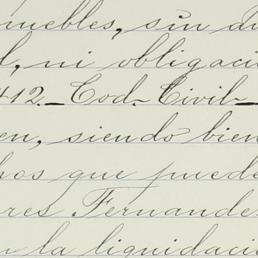 muebles, sin
, ni obligaci
412_Cod_Civil_
en, siendo bien
hos que puede
res Fernande
la liquidaci